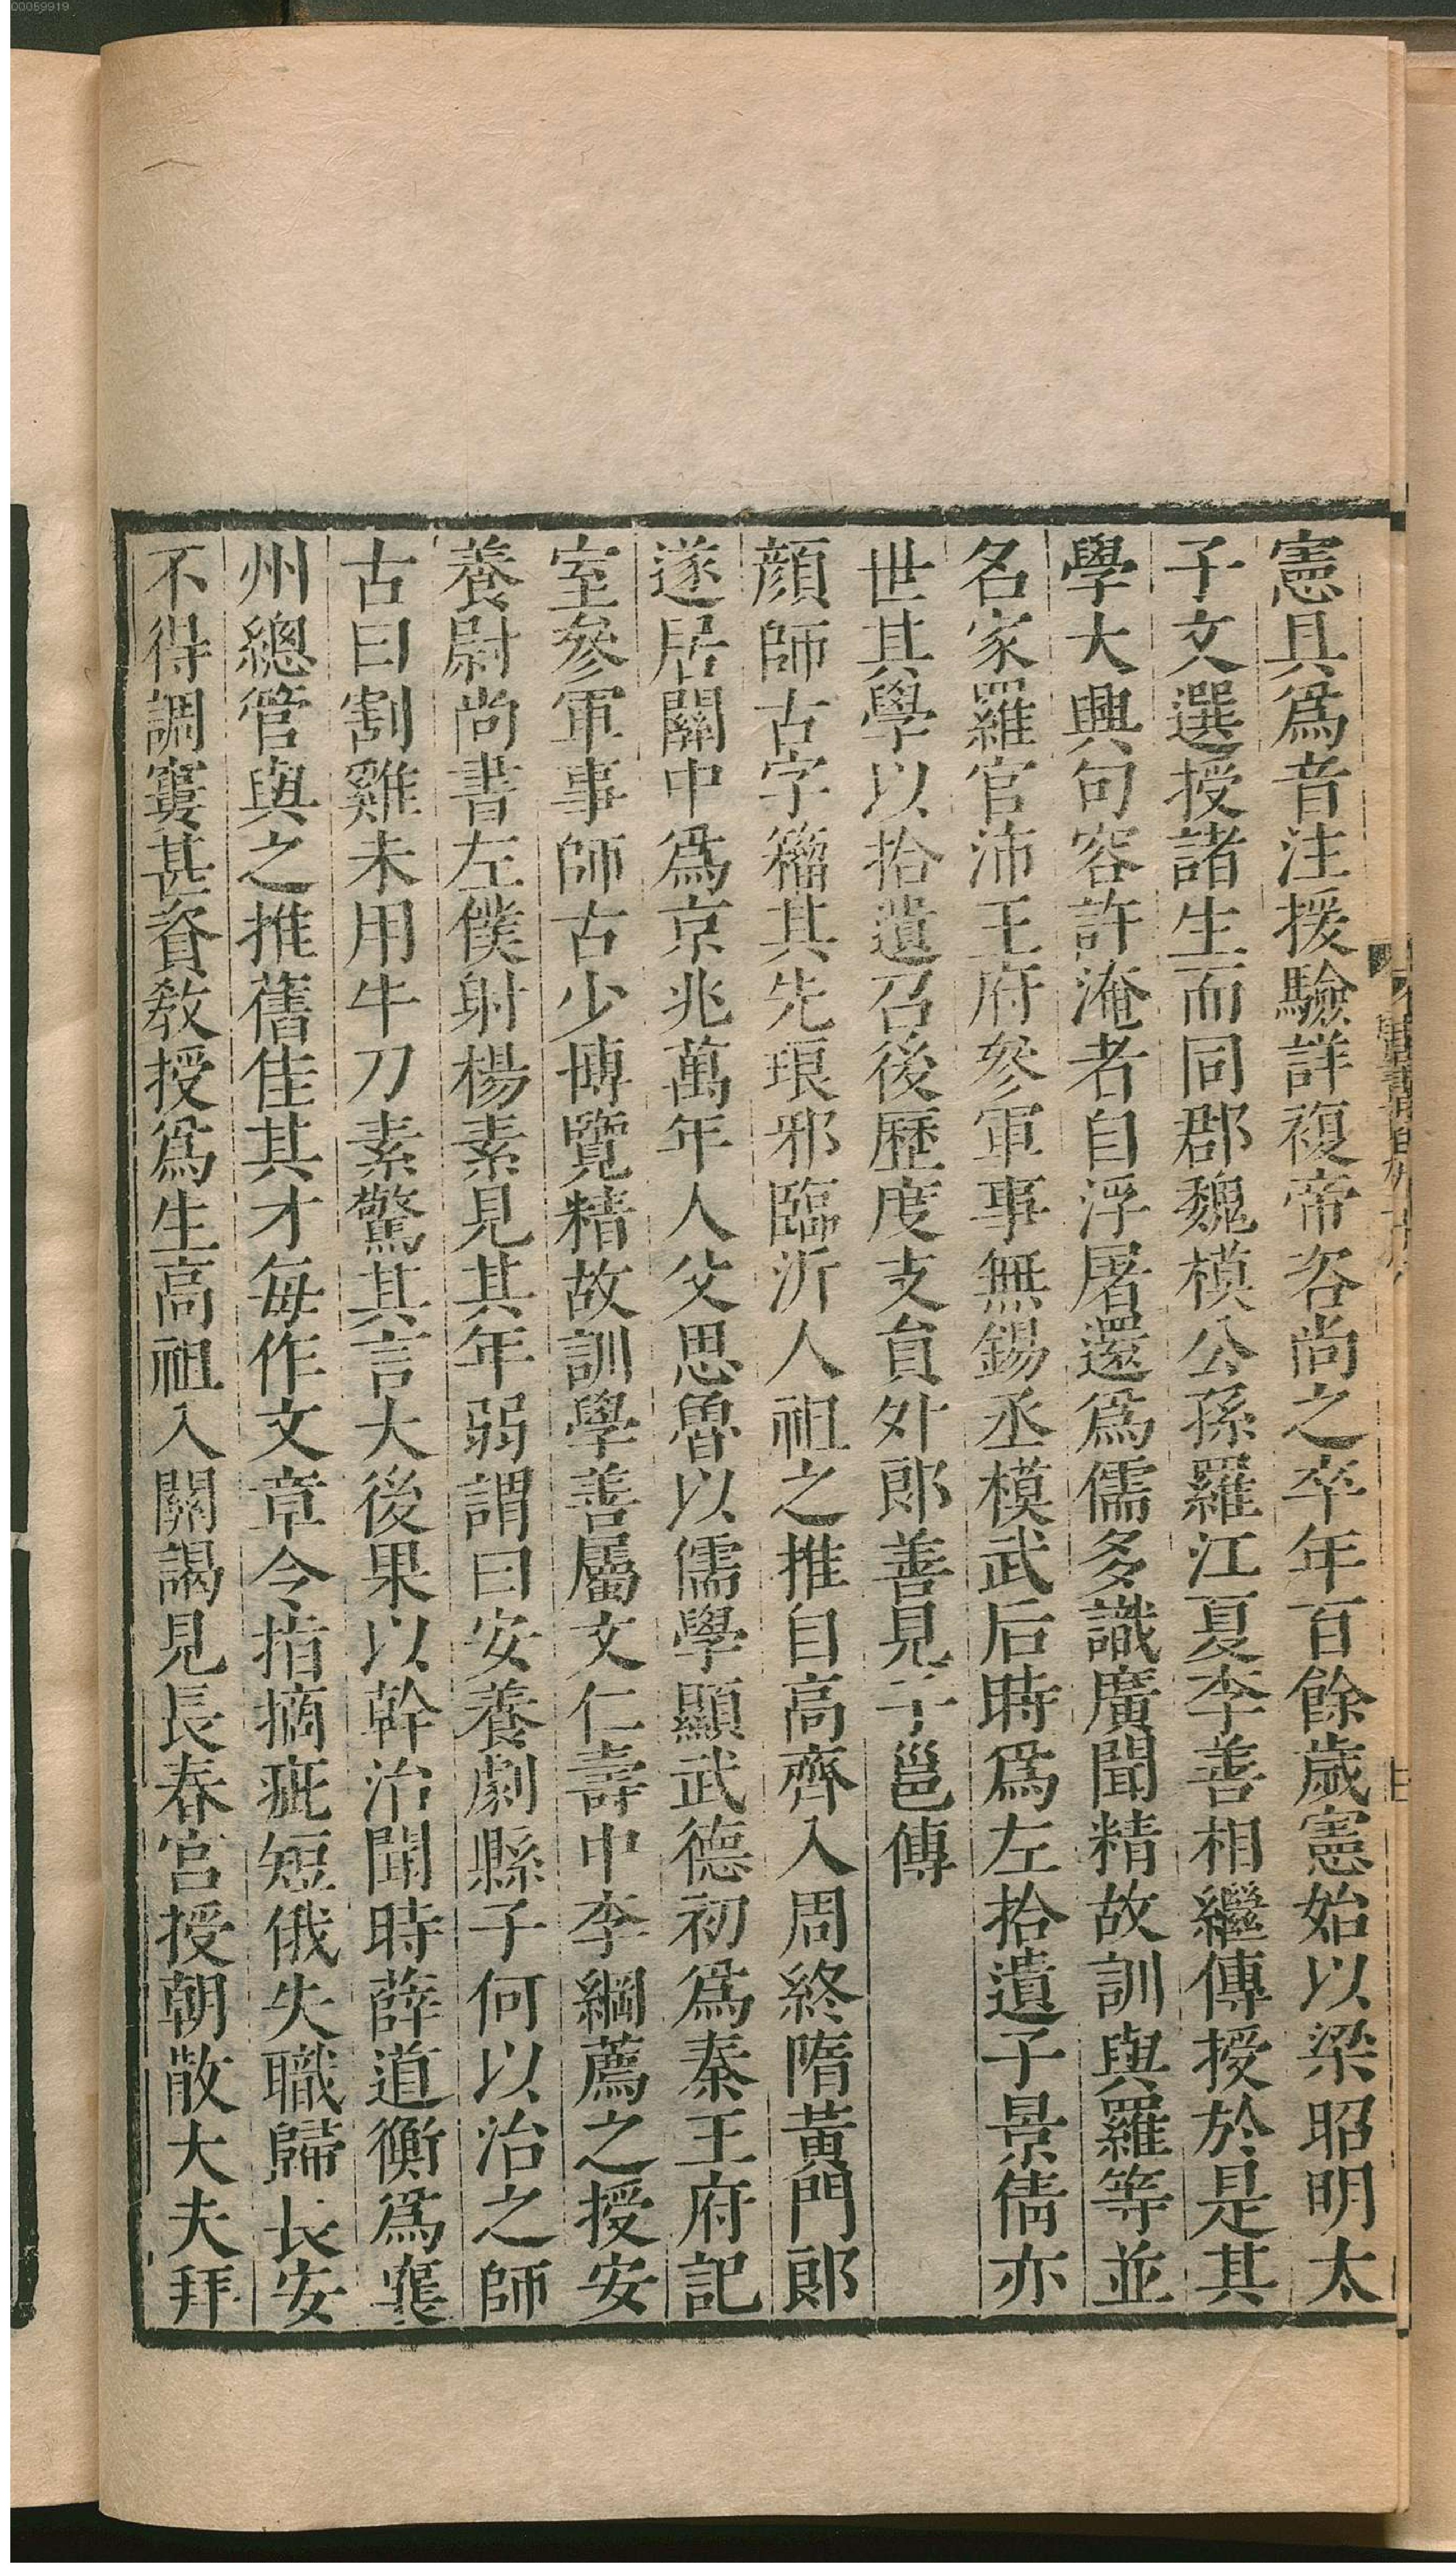 00059919
憲具爲音注援驗詳複帝咨尚之卒年百餘歲憲始以梁昭明太
子文選授諸生而同郡魏模公孫羅江夏李善相繼傳授於是其
學大興句容許淹者自浮屠還爲儒多識廣聞精故訓與羅等並
名家羅官沛王府參軍事無錫丞模武后時爲左拾遺子景倩亦
世其學以拾遺召後歷度支員外郎善見子邕傳
顔師古字籀其先琅邪臨沂人祖之推自高齊入周終隋黃門郎
遂居關中爲京兆萬年人父思魯以儒學顯武德初爲秦王府記
室參軍事師古少博覽精故訓學善屬文仁壽中李綱薦之授安
養尉尚書左僕射楊素見其年弱謂曰安養劇縣子何以治之師
古曰割雞未用牛刀素驚其言大後果以幹治聞時薛道衡爲襄
州總管與之推舊佳其才每作文章令指摘疵短俄失職歸長安
不得調窶甚資敎授爲生高祖入關謁見長春宮授朝散大夫拜